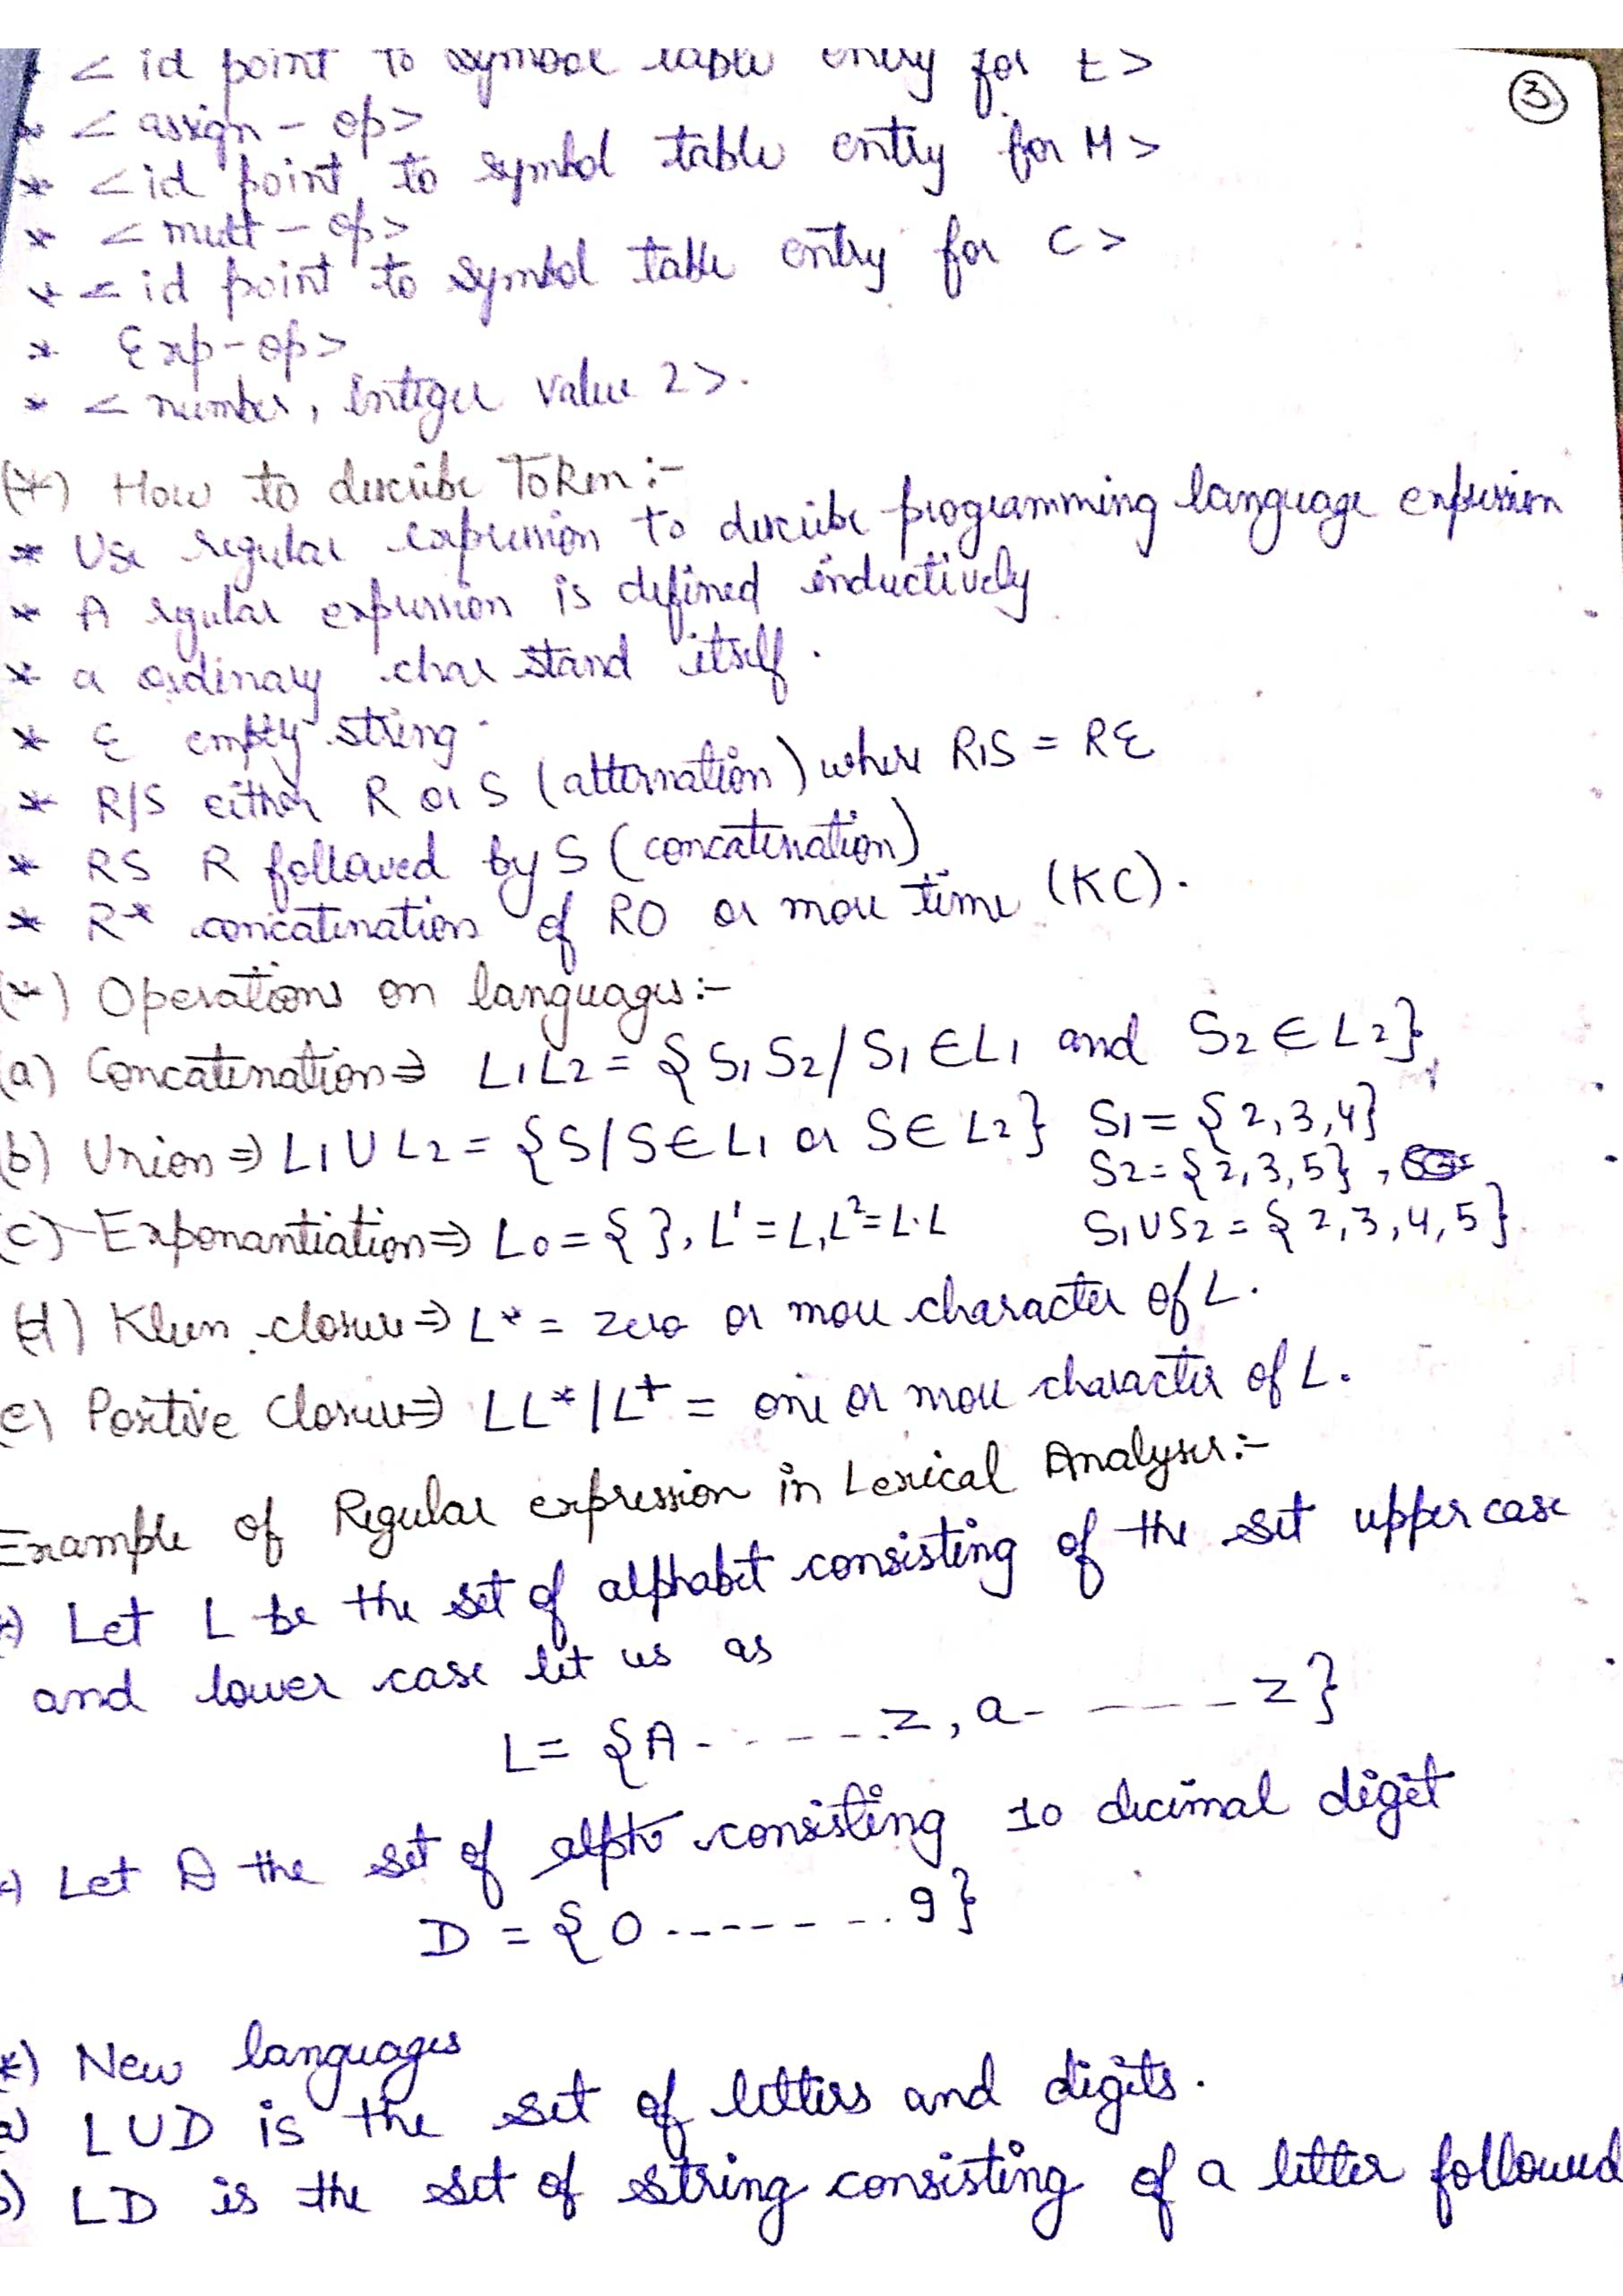 * < id point to symbol table entry for E >
* < assign - op >
* < id point to symbol table entry for M >
* < mult - op >
* < id point to symbol table entry for C >
* Exp - op >
* < number, integer value 2 > .
(*) How to describe Token :-
* Use regular expression to describe programming language expression
* A regular expression is defined inductively
* a ordinary char stand itself .
* ε empty string .
* R/S either R or S ( alternation ) where R|S = Rε
* RS R followed by S ( concatenation )
* R* concatenation of R0 or more time (KC) .
(*) Operations on languages :-
(a) Concatenation ⇒ L1L2 = { S1 S2 / S1 ∈ L1 and S2 ∈ L2 }
(b) Union ⇒ L1 U L2 = { S / S ∈ L1 or S ∈ L2 } S1 = { 2, 3, 4 }
S2 = { 2, 3, 5 } ,
(c) Exponantiation ⇒ L0 = { }, L¹ = L, L² = L.L S1US2 = { 2, 3, 4, 5 }
(d) Kleen closure ⇒ L* = zero or more character of L .
(e) Positive Closure ⇒ LL* / L+ = one or more character of L .
Example of Regular expression in Lexical Analyser :-
*) Let L be the set of alphabet consisting of the set upper case
and lower case let us as
L = { A - - - - - - z , a - - - - - z }
*) Let D the set of consisting 10 decimal digit
D = { 0 - - - - - - - 9 }
*) New languages
a) LUD is the set of letters and digits .
b) LD is the set of string consisting of a letter followed